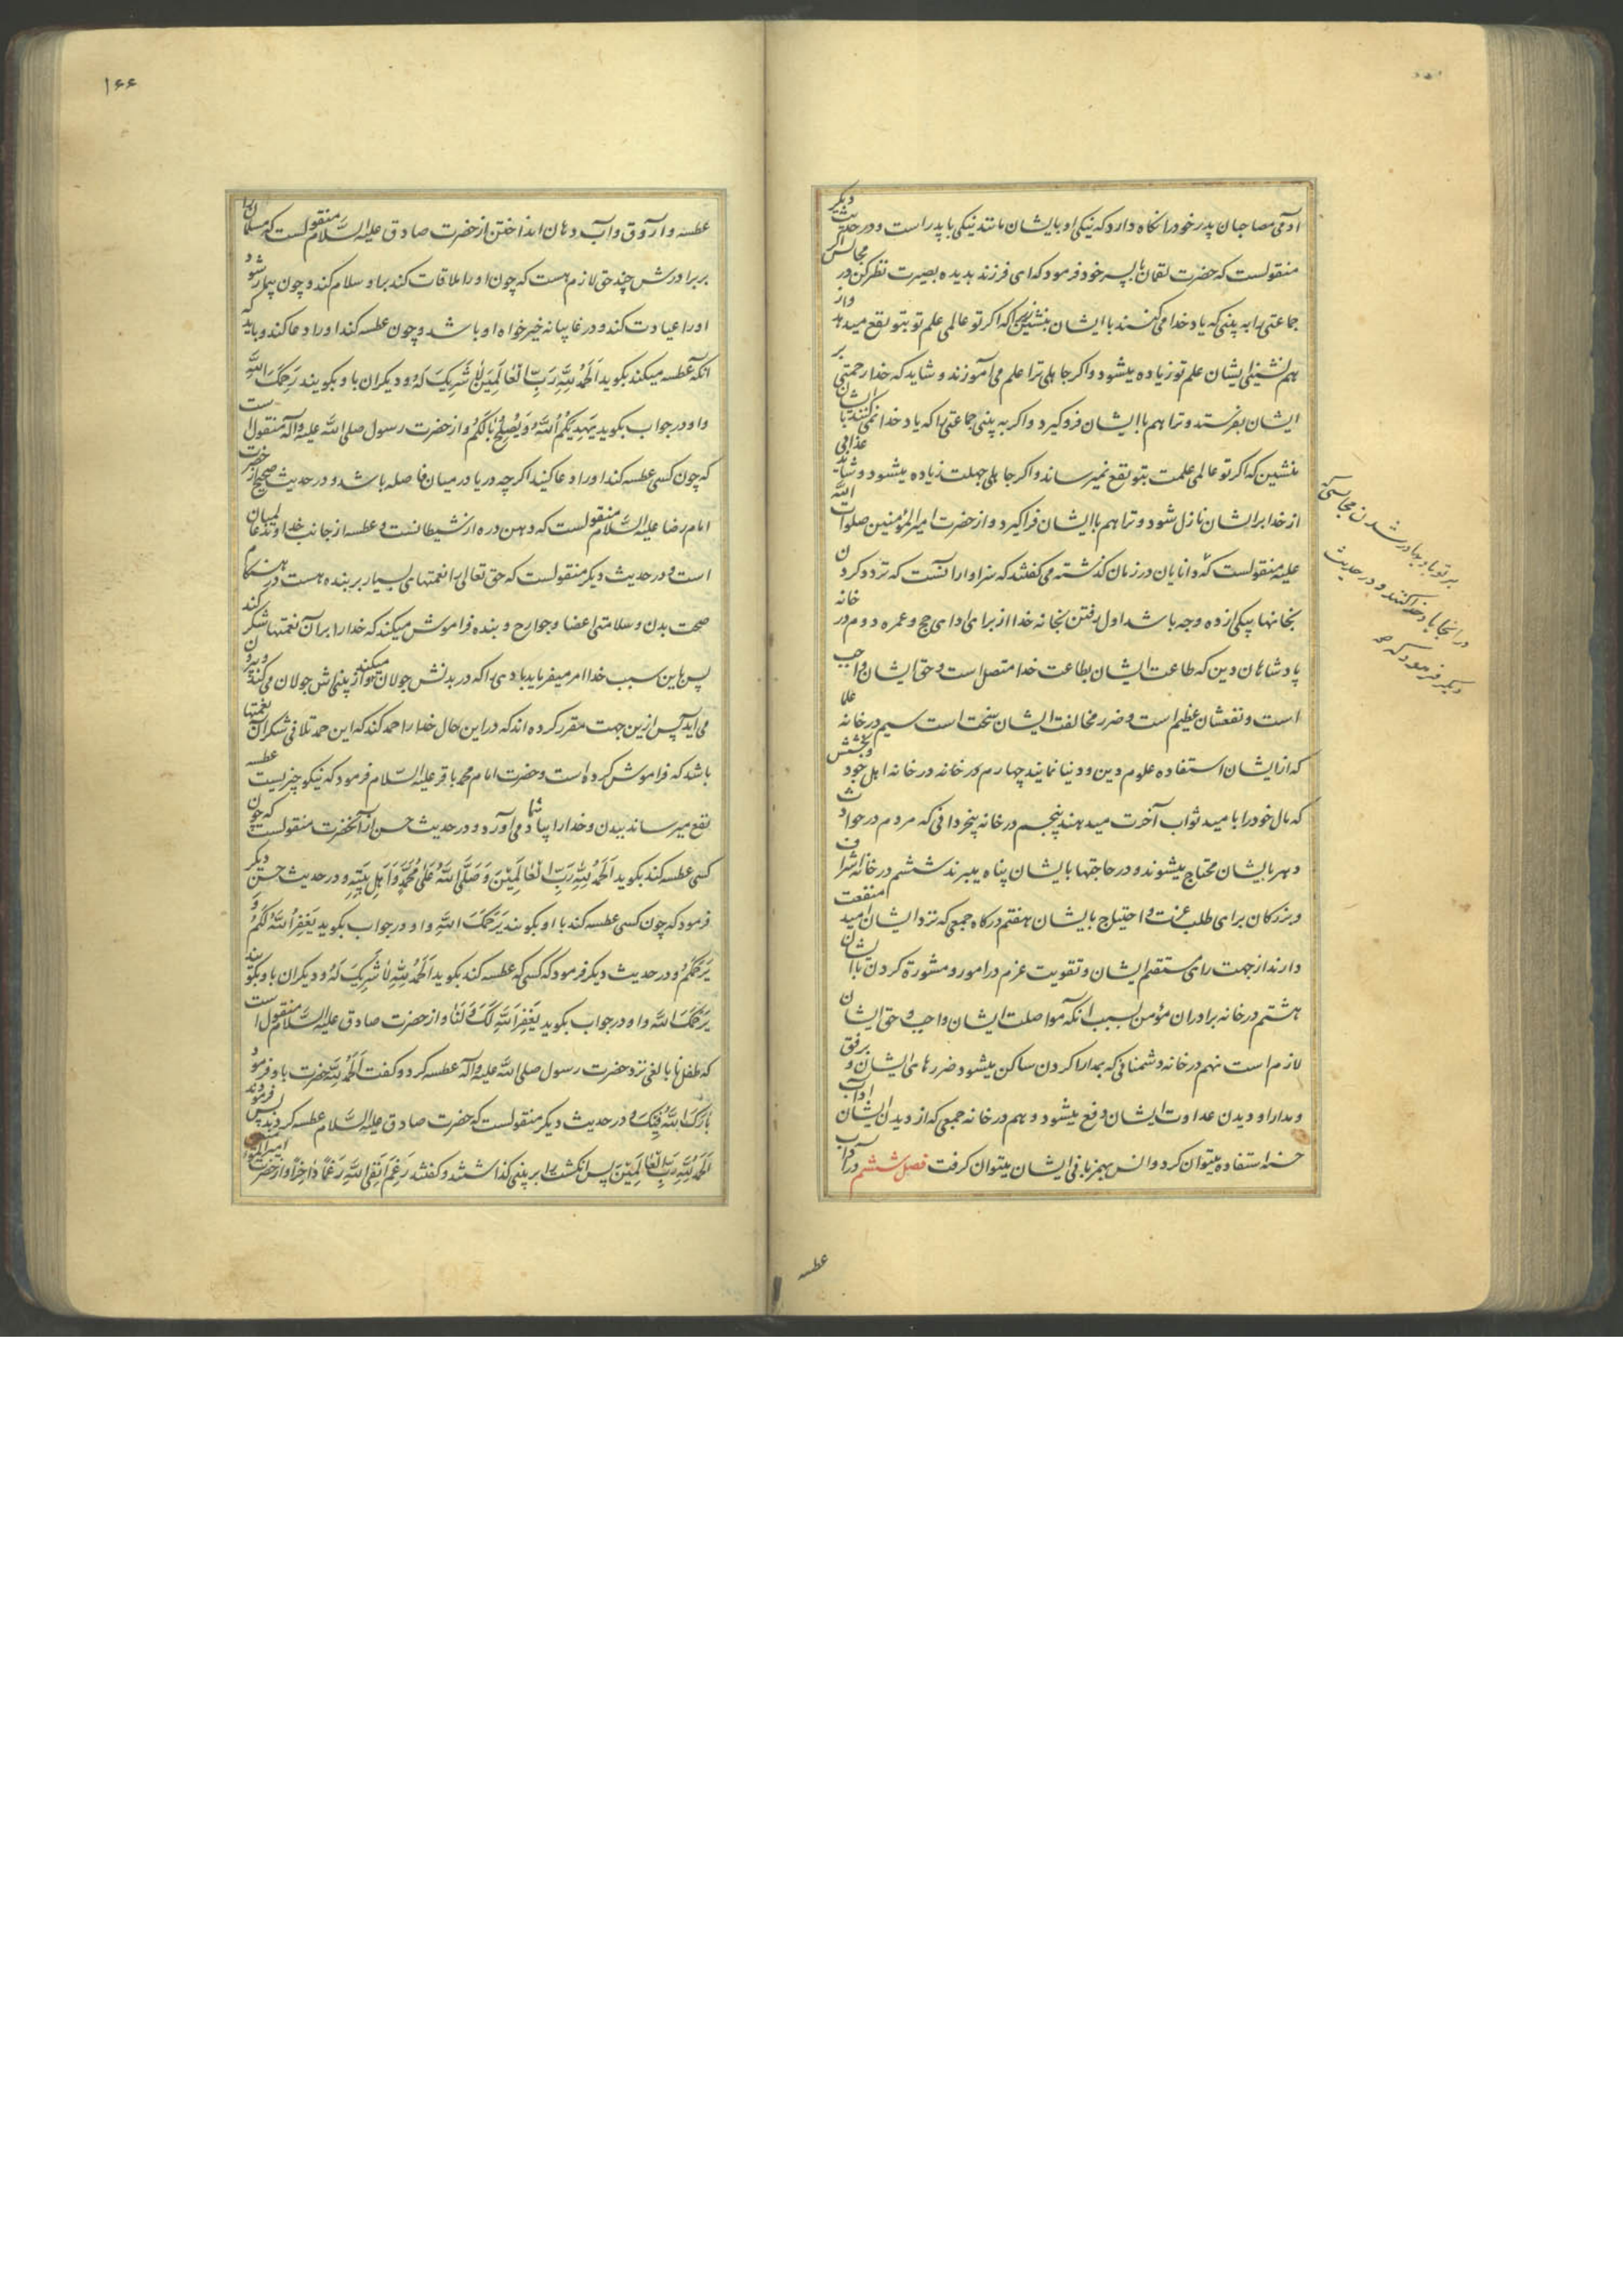 آدمی مصاحبان پدر خود را نگاه دارد که نیکی او بایشان مانند نیکی با پدر است و در حدیث دیگر
منقولست که حضرت لقمان با پسر خود فرمود که ای فرزند بدیده بصیرت نظر کن در مجالس اگر
جماعتی را به بینی که یاد خدا می کنند با ایشان بنشین زیرا که اگر تو عالمی علم تو بتو نفع میدهد و از
هم نشینی ایشان علم تو زیاده میشود و اگر جاهلی ترا علم می آموزند و شاید که خدا رحمتی بر
ایشان بفرستد و ترا هم با ایشان فرو گیرد و اگر به بینی جماعتی را که یاد خدا نمی کنند با ایشان
منشین که اگر تو عالمی علمت بتو نفع نمیرساند و اگر جاهلی جهلت زیاده میشود و شاید عذابی
از خدا بر ایشان نازل شود و ترا هم با ایشان فرا گیرد و از حضرت امیر المؤمنین صلوات الله
علیه منقولست که دانایان در زمان گذشته می گفتند که سزاوار آنست که تردد کردن
بخانها بیکی از ده وجه باشد اول رفتن بخانه خدا از برای ادای حج و عمره دوم در خانه
پادشاهان دین که طاعت ایشان بطاعت خدا متصل است و حق ایشان واجب
است و نفعشان عظیم است و ضرر مخالفت ایشان سخت است سیم در خانه علما
که از ایشان استفاده علوم دین و دنیا نمایند چهارم در خانه در خانه اهل جود و بخشش
که مال خود را بامید ثواب آخرت میدهند پنجم در خانه بیخردانی که مردم در حوادث
دهر بایشان محتاج میشوند و در حاجتها بایشان پناه میبرند ششم در خانه اشراف
و بزرگان برای طلب عزت و احتیاج بایشان هفتم درگاه جمعی که نزد ایشان امید منفعت
دارند از جهت رای مستقیم ایشان و تقویت عزم در امور و مشورة کردن با ایشان
هشتم در خانه برادران مؤمن بسبب آنکه مواصلت ایشان واجب و حق ایشان
لازم است نهم در خانه دشمنانی که بمدارا کردن ساکن میشود ضررهای ایشان و برفق
و مدارا و دیدن عداوت ایشان دفع میشود دهم در خانه جمعی که از دیدن ایشان آداب
حسنه استفاده میتوان کرد و انس بهمزبانی ایشان میتوان گرفت فصل ششم در آداب
بر تو باد بحاضر شدن مجالسی که
در آنجا یاد خدا کنند و در حدیث
دیگر فرمود که
عطسه
۱۶۶
عطسه و آروق و آب دهان انداختن از حضرت صادق علیه السلام منقولست که مسلمان را
بر برادرش چند حق لازم هست که چون او را ملاقات کند بر او سلام کند و چون بیمار شود
او را عیادت کند و در غایبانه خیرخواه او باشد و چون عطسه کند او را دعا کند و باید که
آنکه عطسه میکند بگوید اَلحَمدُ لِلّهِ رَبِّ العالَمینَ لا شَریکَ لَهُ و دیگران باو بگویند رَحِمَکَ اللّهُ
و او در جواب بگوید یَهدیکُمُ اللّهُ وَ یُصلِحُ بالَکُم و از حضرت رسول صلی الله علیه و آله منقول است
که چون کسی عطسه کند او را دعا کنید اگر چه دریا در میان فاصله باشد و در حدیث صحیح از حضرت
امام رضا علیه السلام منقولست که دهن دره از شیطانست و عطسه از جانب خداوند عالمیان
است و در حدیث دیگر منقولست که حق تعالی را نعمتهای بسیار بر بنده هست در هنگام
صحت بدن و سلامتی اعضا و جوارح و بنده فراموش میکند که خدا را بر آن نعمتها شکر کند
پس باین سبب خدا امر میفرماید بادی را که در بدنش جولان میکند و از بینی اش جولان می کند و بیرون
می آید پس ازین جهت مقرر کرده اند که در این حال خدا را حمد کند که این حمد تلافی شکر آن نعمتها
باشد که فراموش کرده است و حضرت امام محمد باقر علیه السلام فرمود که نیکو چیزیست عطسه
نفع میرساند ببدن و خدا را بیاد شما می آورد و در حدیث حسن از آنحضرت منقولست که چون
کسی عطسه کند بگوید اَلحَمدُ لِلّهِ رَبِّ العالَمینَ وَ صَلَّی اللّهُ عَلی مُحَمَّدٍ وَ اَهلِ بَیتِهِ و در حدیث حسن دیگر
فرمود که چون کسی عطسه کند با او بگویند یَرحَمُکَ اللّهُ و او در جواب بگوید یَغفِرُ اللّهُ لَکُم وَ
یَرحَمُکُم و در حدیث دیگر فرمود که کسی که عطسه کند بگوید اَلحَمدُ لِلّهِ لا شَریکَ لَهُ و دیگران باو بگویند
یَرحَمُکَ اللّهُ و او در جواب بگوید یَغفِرُ اللّهُ لَکَ وَ لَنا و از حضرت صادق علیه السلام منقول است
که طفل نابالغی نزد حضرت رسول صلی الله علیه و آله عطسه کرد و گفت اَلحَمدُ لِلّهِ حضرت باو فرمود
بارَکَ اللّهُ فیکَ و در حدیث دیگر منقولست که حضرت صادق علیه السلام عطسه کردند پس فرمودند
اَلحَمدُ لِلّهِ رَبِّ العالَمینَ پس انگشت را بر بینی گذاشتند و گفتند رَغِمَ اَنفی لِلّهِ رَغماً داخِراً و از حضرت امیر المؤ